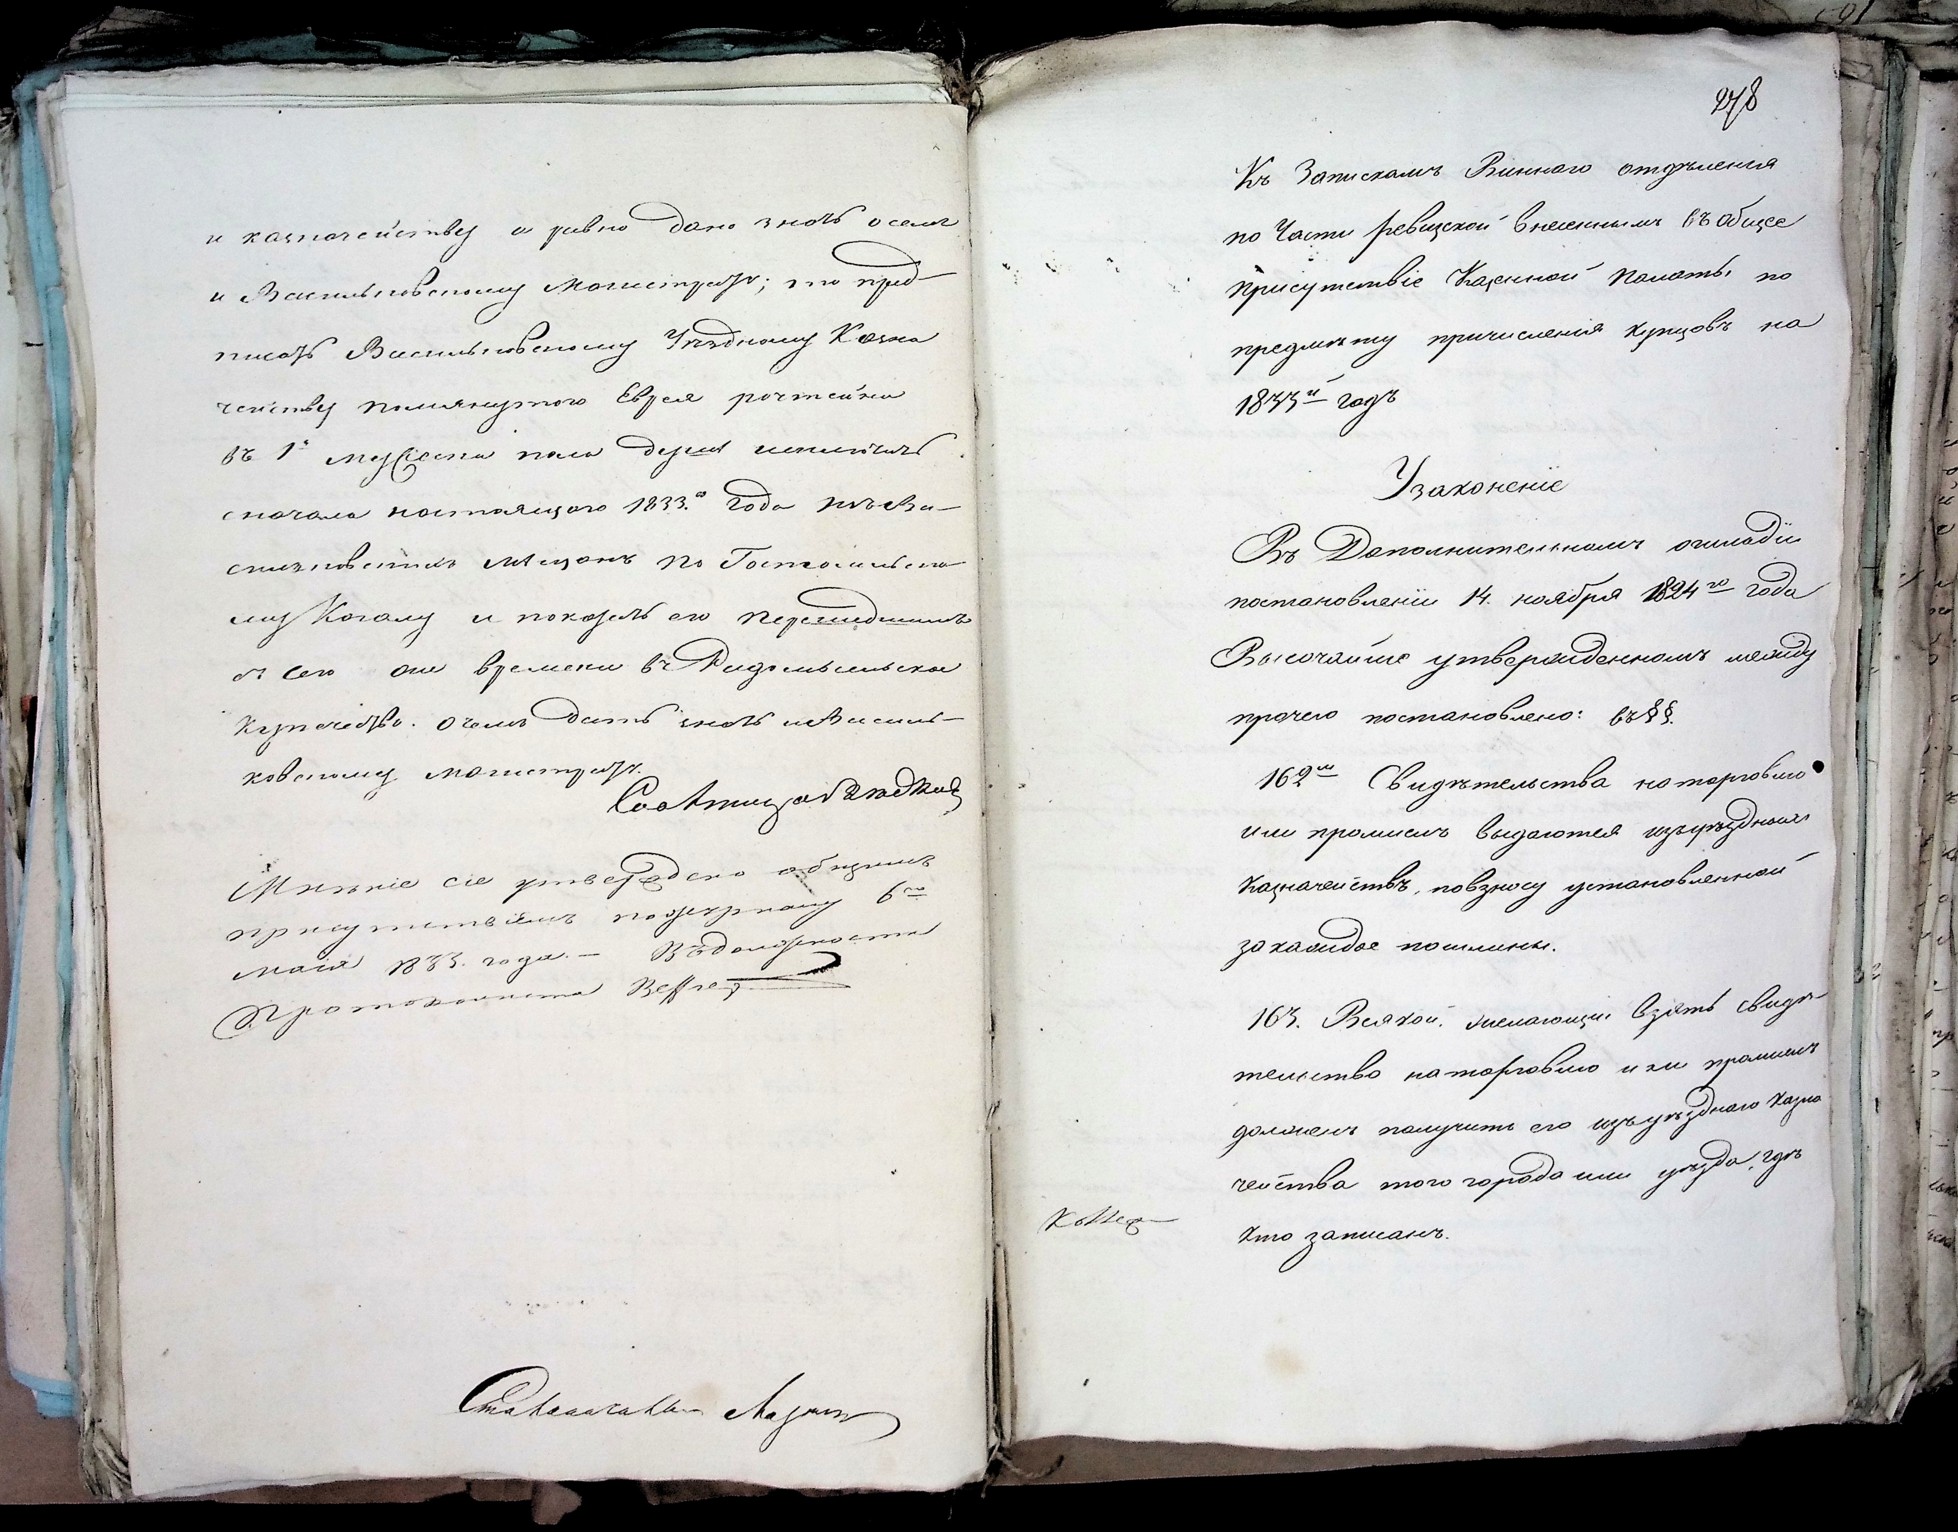 и казначейству а равно дано знать о семъ
и Васильковскому Магистрату; то пред-
писать Васильковскому Уездному Казна
чейству помянутого Еврея
въ 1й мужеска пола души исключить
сначала настоящаго 1833.го года изъ Ва-
сильковскихъ мещанъ по Гостомельско
му Кагалу и показать его перешедшимъ
съ сего же времени въ Радомысльское
купечество. О чемъ дать знать и Василь-
ковскому магистрату.
Мнѣніе сіе утверждено общимъ
присутствіемъ по журналу 6го
маія 1833. года. — Въ должности
Протоколиста
Столоначальникъ
278
Къ Запискамъ Виннаго отдѣленія
по Части ревизской внесеннымъ въ общее
присутствіе Казенной Палаты по
предмѣту причисленія купцовъ на
1833й годъ
Узаконеніе
Въ Дополнительномъ о гильдіи
постановленіи 14. ноября 1824го года
Высочайше утвержденномъ между
прочего постановлено: въ §§.
162мъ Свидѣтельства на торговлю
или промыслъ выдаются изъ уѣздныхъ
Казначействъ, по взносу установленной
за каждое пошлины.
163. Всякой. желающіи взять свидѣ-
тельство на торговлю или промыслъ
долженъ получить его изъ уѣзднаго Казна
чейства того города или уѣзда, гдѣ
кто записанъ.